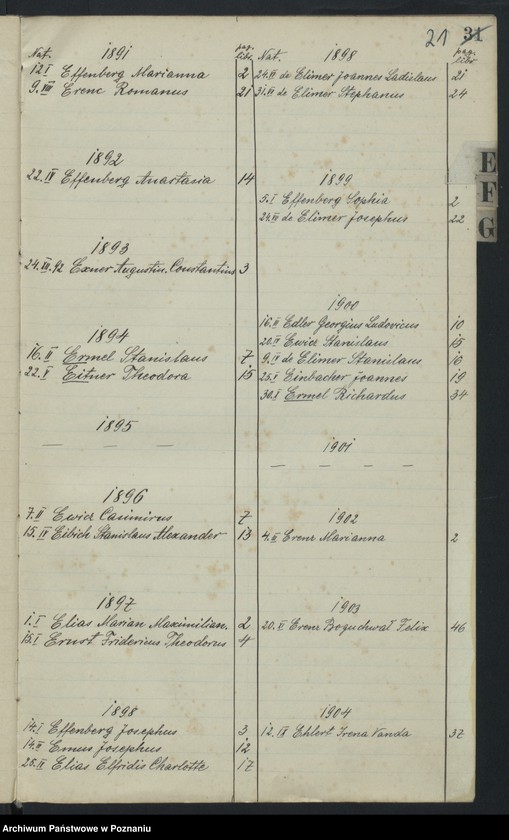 21 31
Nat. 1891 pag. libr.
12 I Effenberg Marianna 2
9. VIII Erenc Romanus 21
1892
22. IV Effenberg Anastasia 14
1893
24. XII. 92 Exner Augustin. Constantinus 3
1894
16. II Ermel Stanislaus 7
22. X Eitner Theodora 15
1895
— — —
1896
7. II Ewicz Casimirus 7
15. IV Eibich Stanislaus Alexander 13
1897
1. I Elias Marian Maximilian. 2
15. I Ernst Fridericus Theodorus 4
1898
14. I Effenberg Josephus 3
14. Emus Josephus 12
25. Elias Elfridis Charlotte 17
Nat. 1898 pag. libr.
24. de Elimer Joannes Ladislaus 21
31. de Elimer Stephanus 24
1899
5. I Effenberg Sophia 2
24. de Elimer Josephus 22
1900
16. II Edler Georgius Ludovicus 10
20. II Ewicz Stanislaus 15
9. de Elimer Stanislaus 16
25. Einbacher Joannes 19
30. X Ermel Richardus 34
1901
— — — —
1902
4. II Erenz Marianna 2
1903
20. Erenz Boguchwał Felix 46
1904
12. IX Ehlert Irena Vanda 37
E
F
G
Archiwum Państwowe w Poznaniu